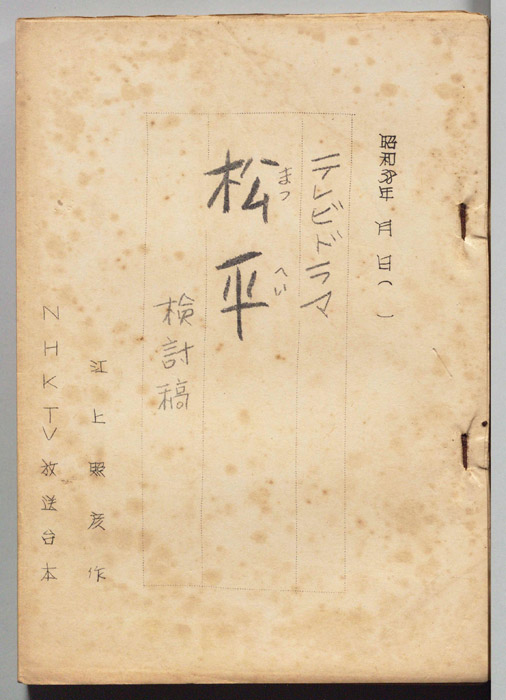 昭和 年 月 日( )
テレビドラマ
松平
まっ へい
検討稿
江上照彦 作
NHKTV放送台本